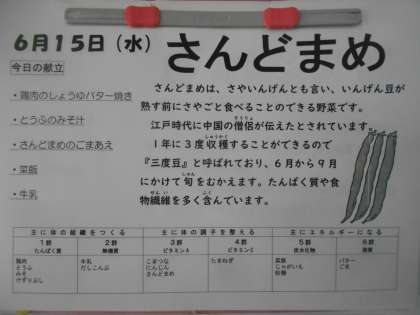 6月15日（水）
さんどまめ
今日の献立
・鶏肉のしょうゆバター焼き
・とうふのみそ汁
・さんどまめのごまあえ
・菜飯
・牛乳
さんどまめは、さやいんげんとも言い、いんげん豆が
熟す前にさやごと食べることのできる野菜です。
江戸時代に中国の僧侶が伝えたとされています。
1年に3度収穫することができるので
『三度豆』と呼ばれており、6月から9月
にかけて旬をむかえます。たんぱく質や食
物繊維を多く含んでいます。
主に体の組織をつくる 主に体の調子を整える 主にエネルギーになる
1群 2群 3群 4群 5群 6群
たんぱく質 無機質 ビタミンA ビタミンC 炭水化物 脂質
鶏肉 牛乳 こまつな たまねぎ 菜飯 バター
とうふ だしこんぶ にんじん じゃがいも ごま
みそ さんどまめ 砂糖
けずりぶし